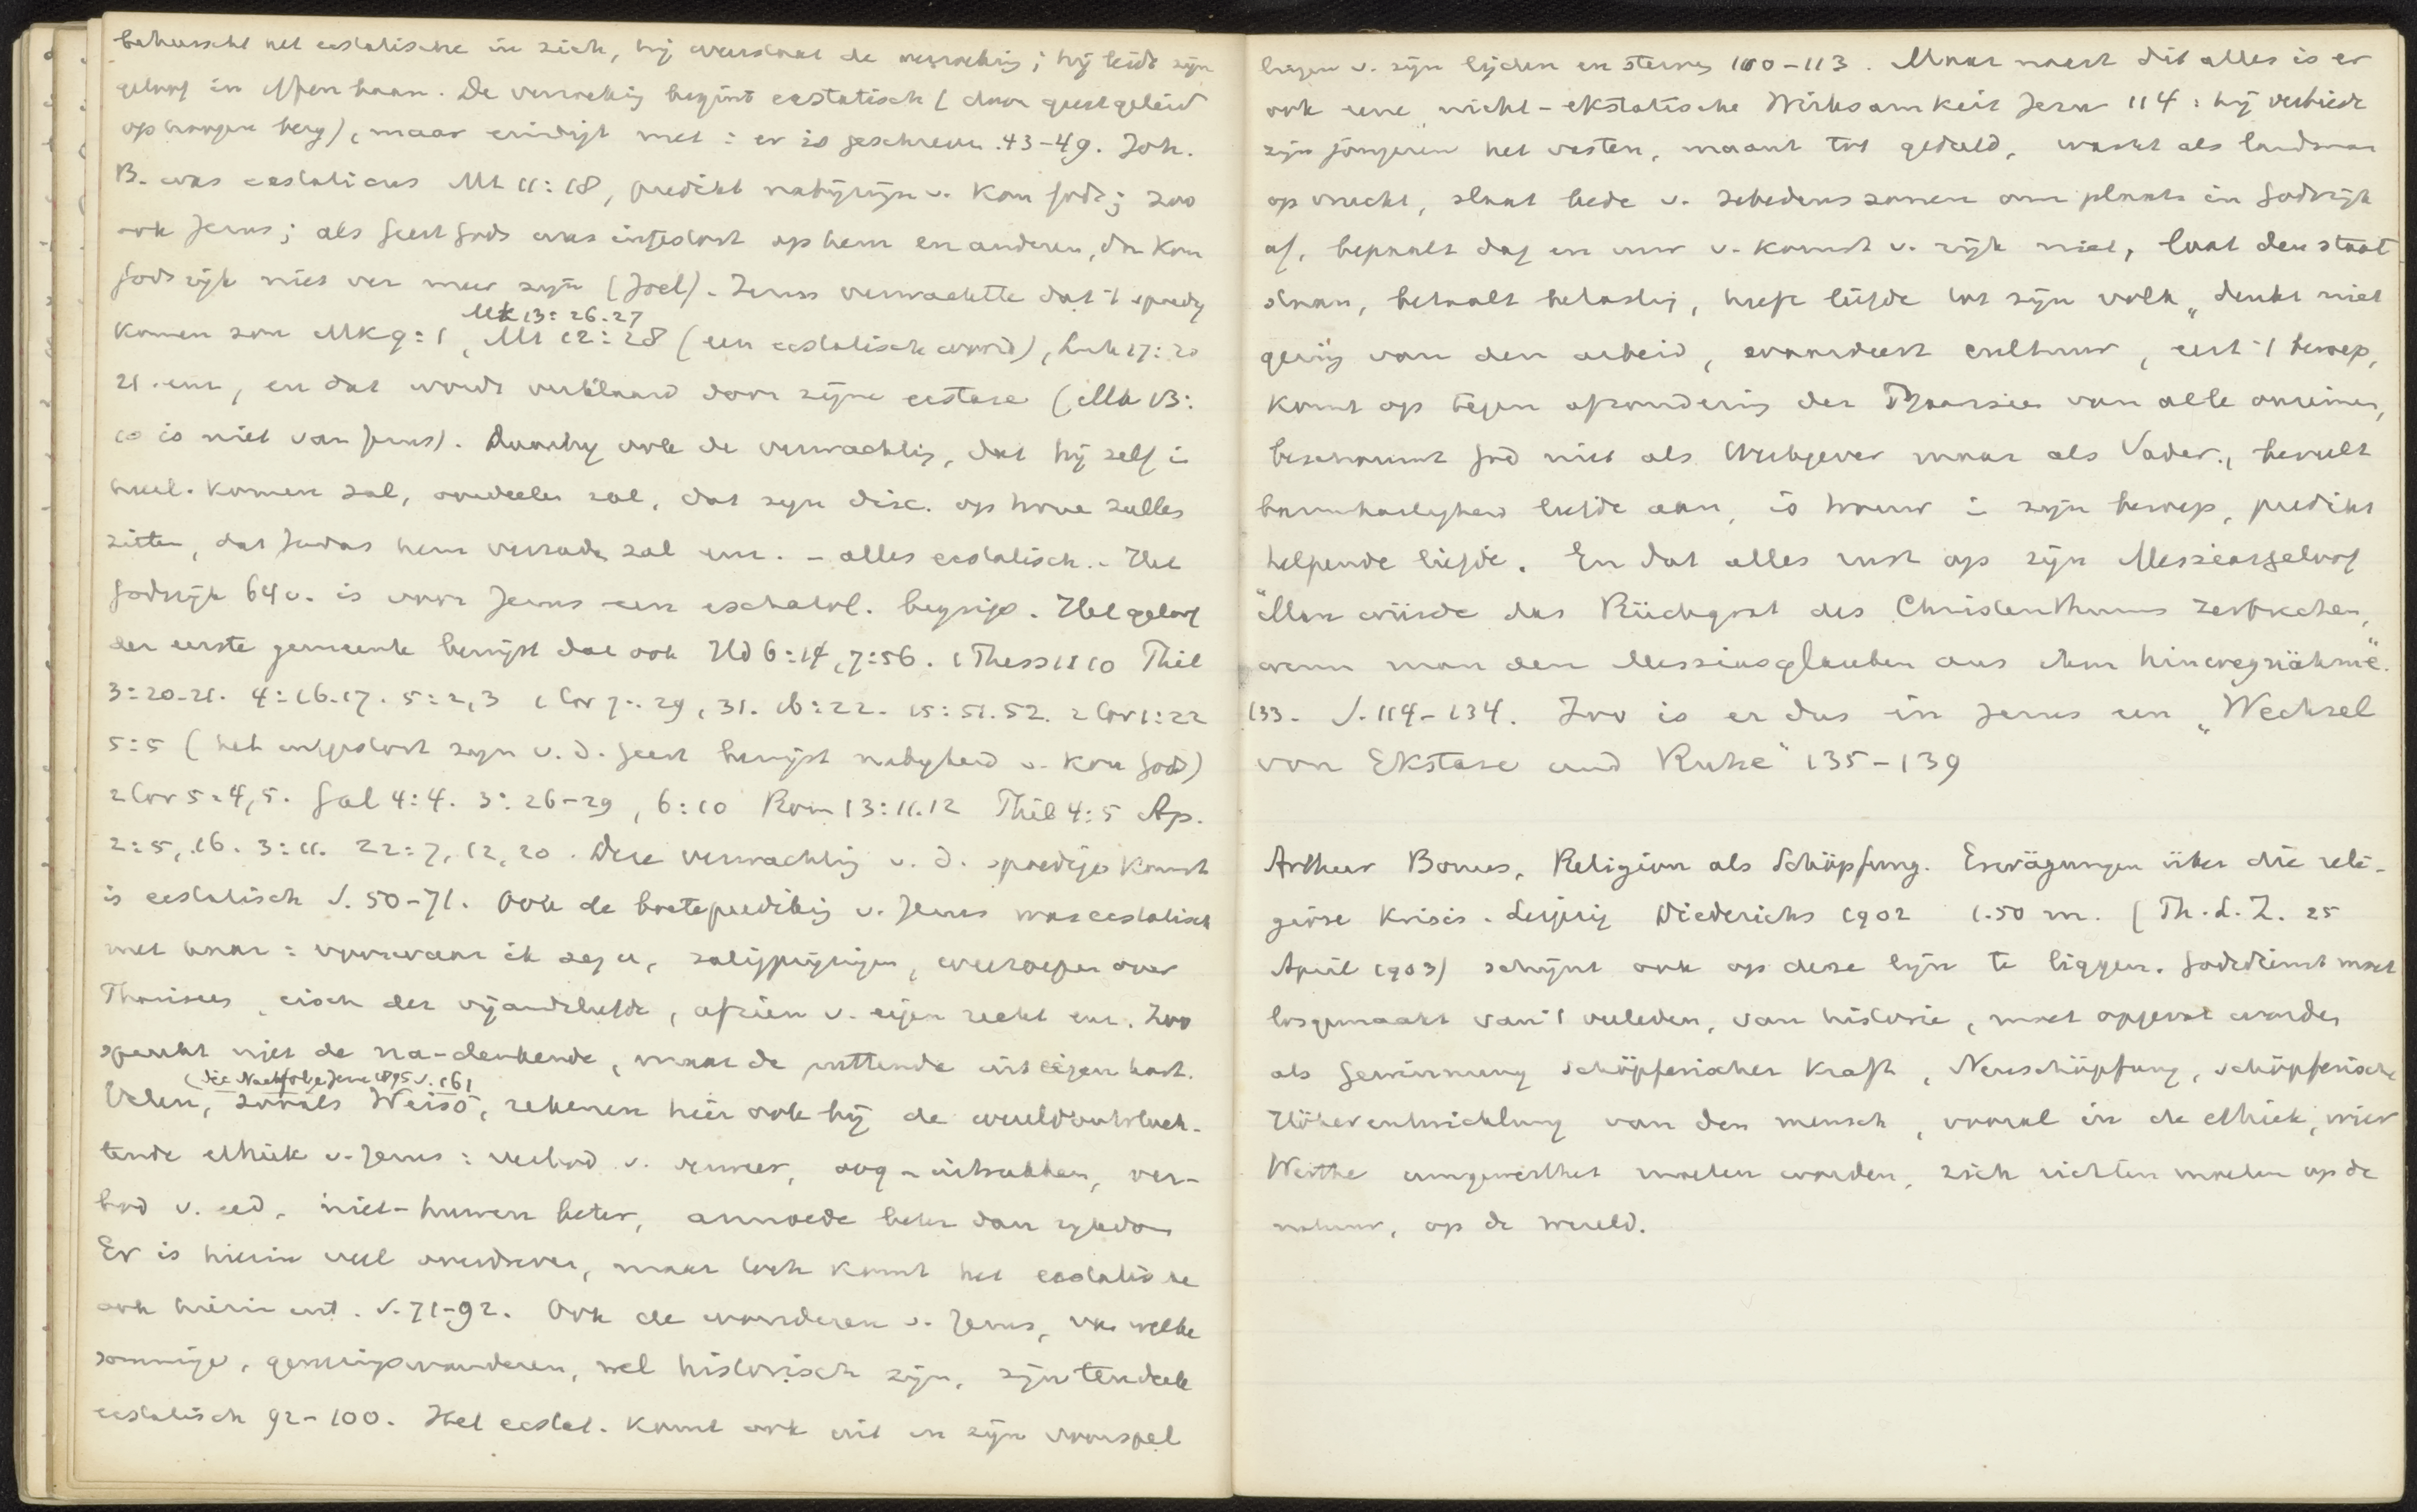 beheerscht het ecstatische in zich, hij weerstaat de verzoeking; hij leidt zijn
geloof in effen baan. De verzoeking begint ecstatisch (door geest geleid
op hoogen berg), maar eindigt met: er is geschreven. 43-49. Joh.
B. was ecstaticus Mt 11:18, predikt nabijzijn v. Kon Gods; zoo
ook Jezus; als Geest Gods was uitgestort op hem en anderen, dan kon
Godsrijk niet ver meer zijn (Joel). Jezus verwachtte dat 't spoedig
Mk 13:26.27
komen zou Mk 9:1, Mt 12:28 (een ecstatisch woord), Luk 17:20
21. enz, en dat wordt verklaard door zijne ecstase (Mk 13:
10 is niet van Jezus). Daarbij ook de verwachting, dat hij zelf i
heerl. komen zal, oordeelen zal, dat zijn disc. op tronen zullen
zitten, dat Judas hem verraden zal enz. - alles ecstatisch. - Het
Godsrijk 64v. is voor Jezus een eschatol. begrip. Het geloof
der eerste gemeente bewijst dat ook Hd 6:14, 7:56. 1 Thess 1:10 Phil
3:20-21. 4:16.17. 5:2,3 1 Cor 7:29, 31. 16:22. 15:51.52. 2 Cor 1:22
5:5 (het uitgestort zijn v. d. Geest bewijst nabijheid v. Kon Gods)
2 Cor 5:4,5. Gal 4:4. 3:26-29, 6:10 Rom 13:11.12 Phil 4:5 Ap.
2:5, 16. 3:11. 22:7, 12, 20. Deze verwachting v. d. spoedige komst
is ecstatisch S. 50-71. Ook de boeteprediking v. Jezus was ecstatisch
met haar: voorwaar ik zeg u, zaligprijzingen, weeroepen over
Pharisees, eisch der vijandsliefde, afzien v. eigen recht enz. Zoo
spreekt niet de na-denkende, maar de puttende uit eigen hart.
(die Nachfolge Jesu 1895 S. 161
Velen, zooals Weiss, rekenen hier ook bij de wereldontvluch-
tende ethiek v. Jezus: verbod v. zweer, oog-uitrukken, ver-
bod v. eed, niet-huwen beter, armoede beter dan rijkdom
Er is hierin veel overdreven, maar toch komt het ecstatische
ook hierin uit. S. 71-92. Ook de wonderen v. Jezus, van welke
sommige, genezingswonderen, wel historisch zijn, zijn tendeele
ecstatisch 92-100. Het ecstat. komt ook uit in zijn voorspel
lingen v. zijn lijden en sterven 100-113. Maar naast dit alles is er
ook eene nicht-ekstatische Wirksamkeit Jesu 114: hij verbiedt
zijn jongeren het vasten, maant tot geduld, wacht als landman
op vrucht, slaat bede v. Zebedeus zonen om plaats in Godsrijk
af, bepaalt dag en uur v. komst v. rijk niet, laat den staat
staan, betaalt belasting, heeft liefde tot zijn volk, denkt niet
gering van den arbeid, waardeert cultuur, eert 't beroep,
komt op tegen afzondering der Pharizees van alle onreinen,
beschouwt God niet als Wetgever maar als Vader, beveelt
barmhartigheid liefde aan, is trouw i zijn beroep, predikt
helpende liefde. En dat alles rust op zijn Messiasgeloof
"Man würde das Rückgrat des Christenthums zerbrechen,
wenn man den Messiasglauben aus ihm hinwegnähme".
133. S. 114-134. Zoo is er dus in Jezus een „Wechsel
von Ekstase und Ruhe" 135-139
Arthur Bonus, Religion als Schöpfung. Erwägungen über die reli-
giöse Krisis. Leipzig Diederichs 1902 1.50 m. (Th. L. Z. 25
April 1903) schijnt ook op deze lijn te liggen. Godsdienst moet
losgemaakt van 't verleden, van historie, moet opgevat worden
als Gewinnung schöpferischer Kraft, Neuschöpfung, schöpferische
Höherentwicklung van den mensch, vooral in de ethiek, wier
Werthe umgewerthet moeten worden, zich richten moeten op de
natuur, op de wereld.